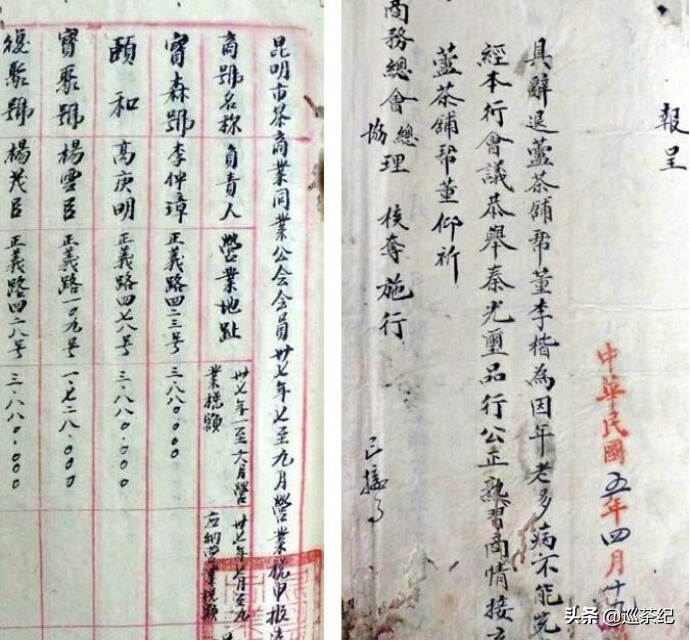 昆明市茶商業同業公会会員卅七年七至九月營業稅申报清
商號名称
負責人
營業地趾
卅七年一至六月營
業稅額
卅七年七月至九
应納营業稅額
寳森號
李仲璋
正義路四二三号
三·八八〇·〇〇〇
頤和
高庚明
正義路四七八号
三·八八〇·〇〇〇
寳聚號
楊雲臣
正義路一〇九号
一·七二八·〇〇〇
復聚號
楊茂臣
正義路四二八号
三·八八〇·〇〇〇
報呈
中華民國五年四月十九
具辭退蘆茶舖幇董李楷為因年老多病不能充
經本行會議恭舉秦光璽品行公正熟習商情接充
蘆茶舖幇董仰祈
商務總會總協理 核奪施行
头条 @巡茶纪